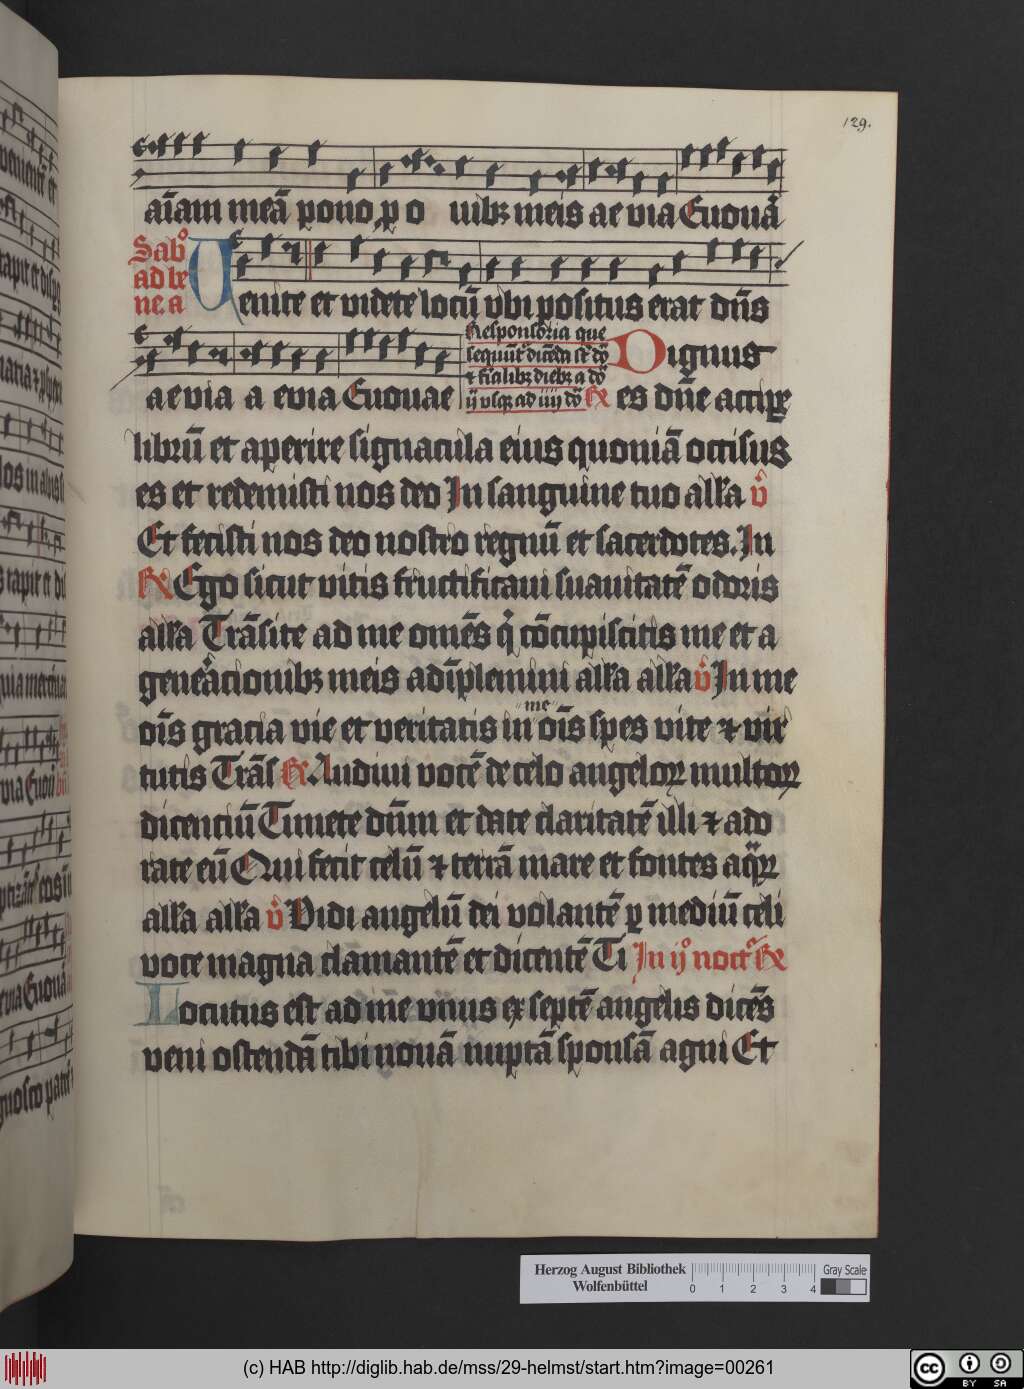 129.
aīam meā pono p o uibꝫ meis ae via Euouā
Sabº
ad be
ne. a
Uenite et videte locū vbi positus erat dn̄s
Responsoria que
Dignus
aevia a evia Euouae
℟ es dn̄e accipe
librū et aperire signacula eius quoniā occisus
es et redemisti nos deo In sanguine tuo all'a v̊
Et fecisti nos deo nostro regnū et sacerdotes. In
℟ Ego sicut vitis fructificaui suauitatē odoris
all'a Trāsite ad me omēs q̇ cōcupiscitis me et a
geneācionibꝫ meis adīplemini all'a all'a v̊ In me
me
oīs gracia vie et veritatis in oīs spes vite ⁊ vir
tutis Trās ℟ Audiui vocē de celo angeloꝝ multoꝝ
dicenciū Timete dn̄m et date claritatē illi ⁊ ado
rate eū Qui fecit celū ⁊ terrā mare et fontes aqꝝ
all'a all'a v̊ Vidi angelū dei volantē ꝑ mediū celi
voce magna clamantē et dicentē Ti In ijº noctº ℟
Locutus est ad me vnus ex septē angelis dicēs
veni ostendā tibi nouā nuptā sponsā agni Et
Herzog August Bibliothek
Wolfenbüttel
0 1 2 3 4
Gray Scale
(c) HAB http://diglib.hab.de/mss/29-helmst/start.htm?image=00261
cc BY SA